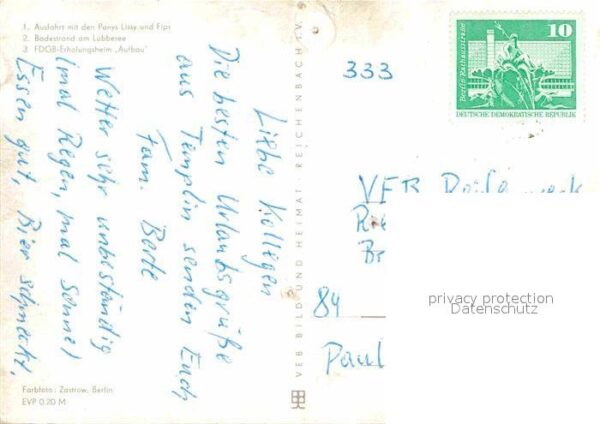 1. Ausfahrt mit den Ponys Lissy und Fips
2. Badestrand am Lübbesee
3 FDGB-Erholungsheim „Aufbau"
Liebe Kollegen
Die besten Urlaubsgrüße
aus Templin senden Euch,
Fam. Berte
Wetter sehr unbeständig
(mal Regen, mal Sonne)
Essen gut, Bier schmeckt.
Farbfoto: Zastrow, Berlin
EVP 0.20 M
VEB BILD UND HEIMAT REICHENBACH i. V.
333
Berlin-Rathausstraße
10
DEUTSCHE DEMOKRATISCHE REPUBLIK
VEB
84
Paul
privacy protection
Datenschutz